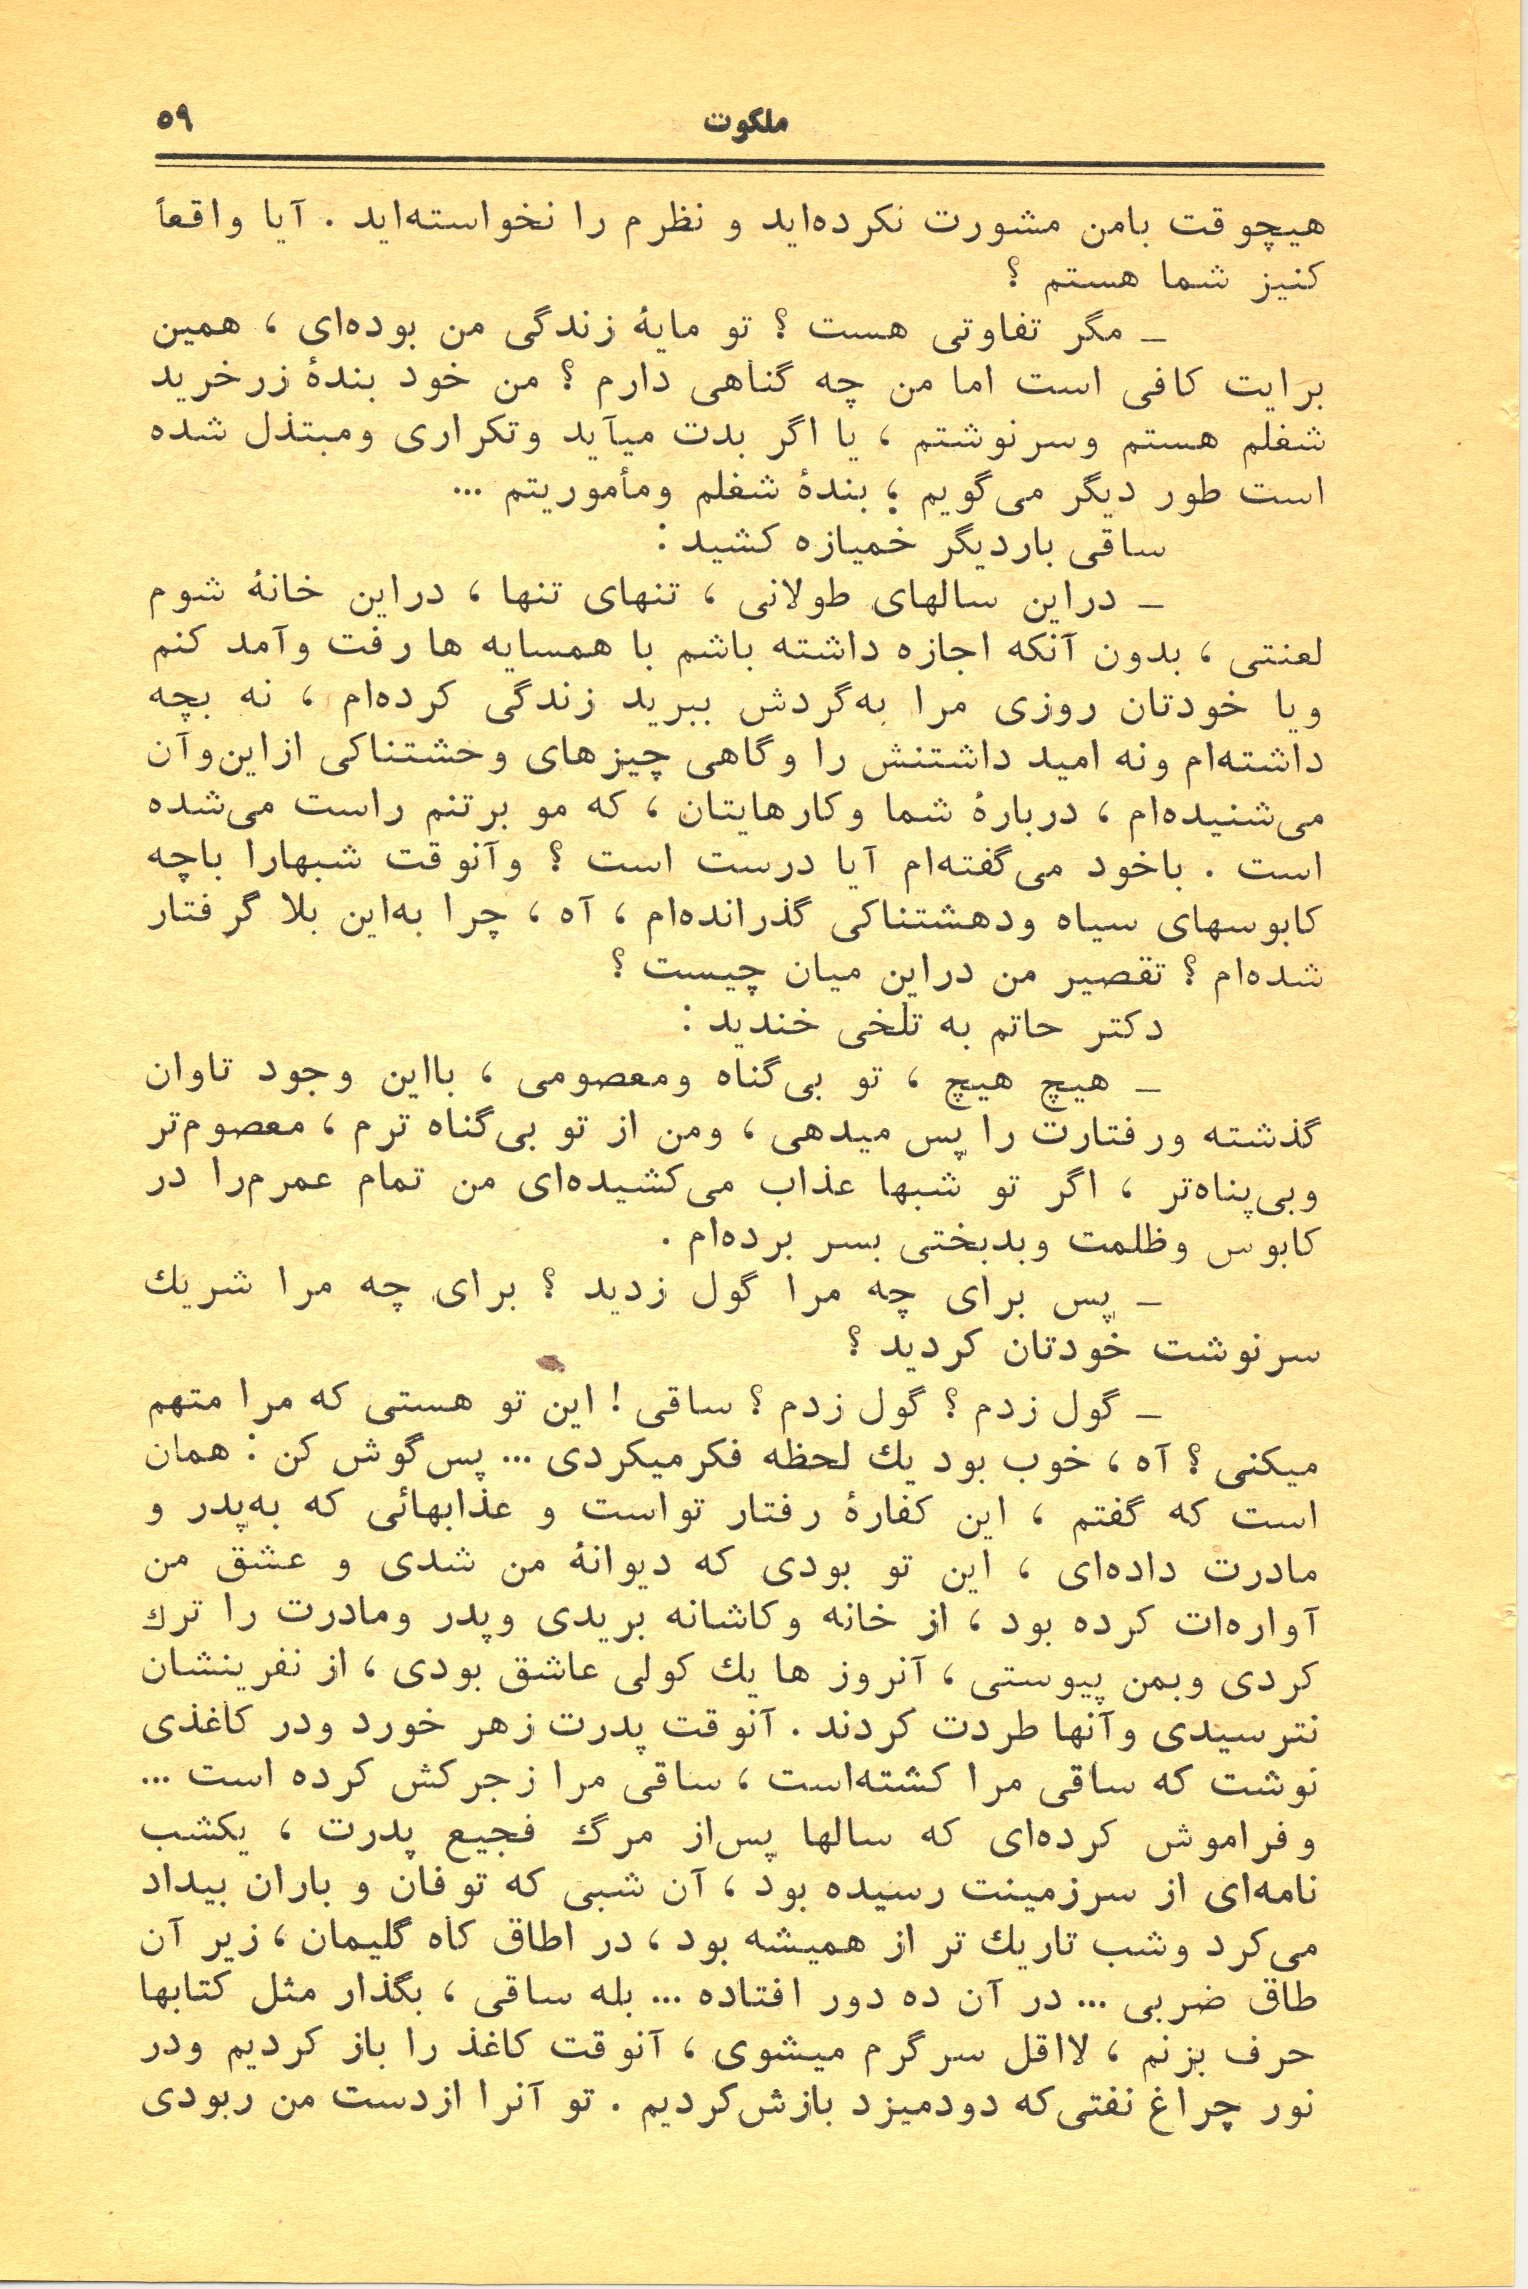 ملکوت ۵۹
هیچوقت بامن مشورت نکرده‌اید و نظرم را نخواسته‌اید . آیا واقعاً
کنیز شما هستم ؟
ــ مگر تفاوتی هست ؟ تو مایهٔ زندگی من بوده‌ای ، همین
برایت کافی است اما من چه گناهی دارم ؟ من خود بندهٔ زرخرید
شغلم هستم وسرنوشتم ، یا اگر بدت میآید وتکراری ومبتذل شده
است طور دیگر می‌گویم ؛ بندهٔ شغلم ومأموریتم ...
ساقی باردیگر خمیازه کشید :
ــ دراین سالهای طولانی ، تنهای تنها ، دراین خانهٔ شوم
لعنتی ، بدون آنکه اجازه داشته باشم با همسایه ها رفت وآمد کنم
ویا خودتان روزی مرا به‌گردش ببرید زندگی کرده‌ام ، نه بچه
داشته‌ام ونه امید داشتنش را وگاهی چیزهای وحشتناکی ازاین‌وآن
می‌شنیده‌ام ، دربارهٔ شما وکارهایتان ، که مو برتنم راست می‌شده
است . باخود می‌گفته‌ام آیا درست است ؟ وآنوقت شبهارا باچه
کابوسهای سیاه ودهشتناکی گذرانده‌ام ، آه ، چرا به‌این بلا گرفتار
شده‌ام ؟ تقصیر من دراین میان چیست ؟
دکتر حاتم به تلخی خندید :
ــ هیچ هیچ ، تو بی‌گناه ومعصومی ، بااین وجود تاوان
گذشته ورفتارت را پس میدهی ، ومن از تو بی‌گناه ترم ، معصوم‌تر
وبی‌پناه‌تر ، اگر تو شبها عذاب می‌کشیده‌ای من تمام عمرم‌را در
کابوس وظلمت وبدبختی بسر برده‌ام .
ــ پس برای چه مرا گول زدید ؟ برای چه مرا شریك
سرنوشت خودتان کردید ؟
ــ گول زدم ؟ گول زدم ؟ ساقی ! این تو هستی که مرا متهم
میکنی ؟ آه ، خوب بود یك لحظه فکرمیکردی ... پس‌گوش کن : همان
است که گفتم ، این کفارهٔ رفتار تواست و عذابهائی که به‌پدر و
مادرت داده‌ای ، این تو بودی که دیوانهٔ من شدی و عشق من
آواره‌ات کرده بود ، از خانه وکاشانه بریدی وپدر ومادرت را ترك
کردی وبمن پیوستی ، آنروز ها یك کولی عاشق بودی ، از نفرینشان
نترسیدی وآنها طردت کردند . آنوقت پدرت زهر خورد ودر کاغذی
نوشت که ساقی مرا کشته‌است ، ساقی مرا زجرکش کرده است ...
وفراموش کرده‌ای که سالها پس‌از مرگ فجیع پدرت ، یکشب
نامه‌ای از سرزمینت رسیده بود ، آن شبی که توفان و باران بیداد
می‌کرد وشب تاریك تر از همیشه بود ، در اطاق کاه گلیمان ، زیر آن
طاق ضربی ... در آن ده دور افتاده ... بله ساقی ، بگذار مثل کتابها
حرف بزنم ، لااقل سرگرم میشوی ، آنوقت کاغذ را باز کردیم ودر
نور چراغ نفتی‌که دودمیزد بازش‌کردیم . تو آنرا ازدست من ربودی